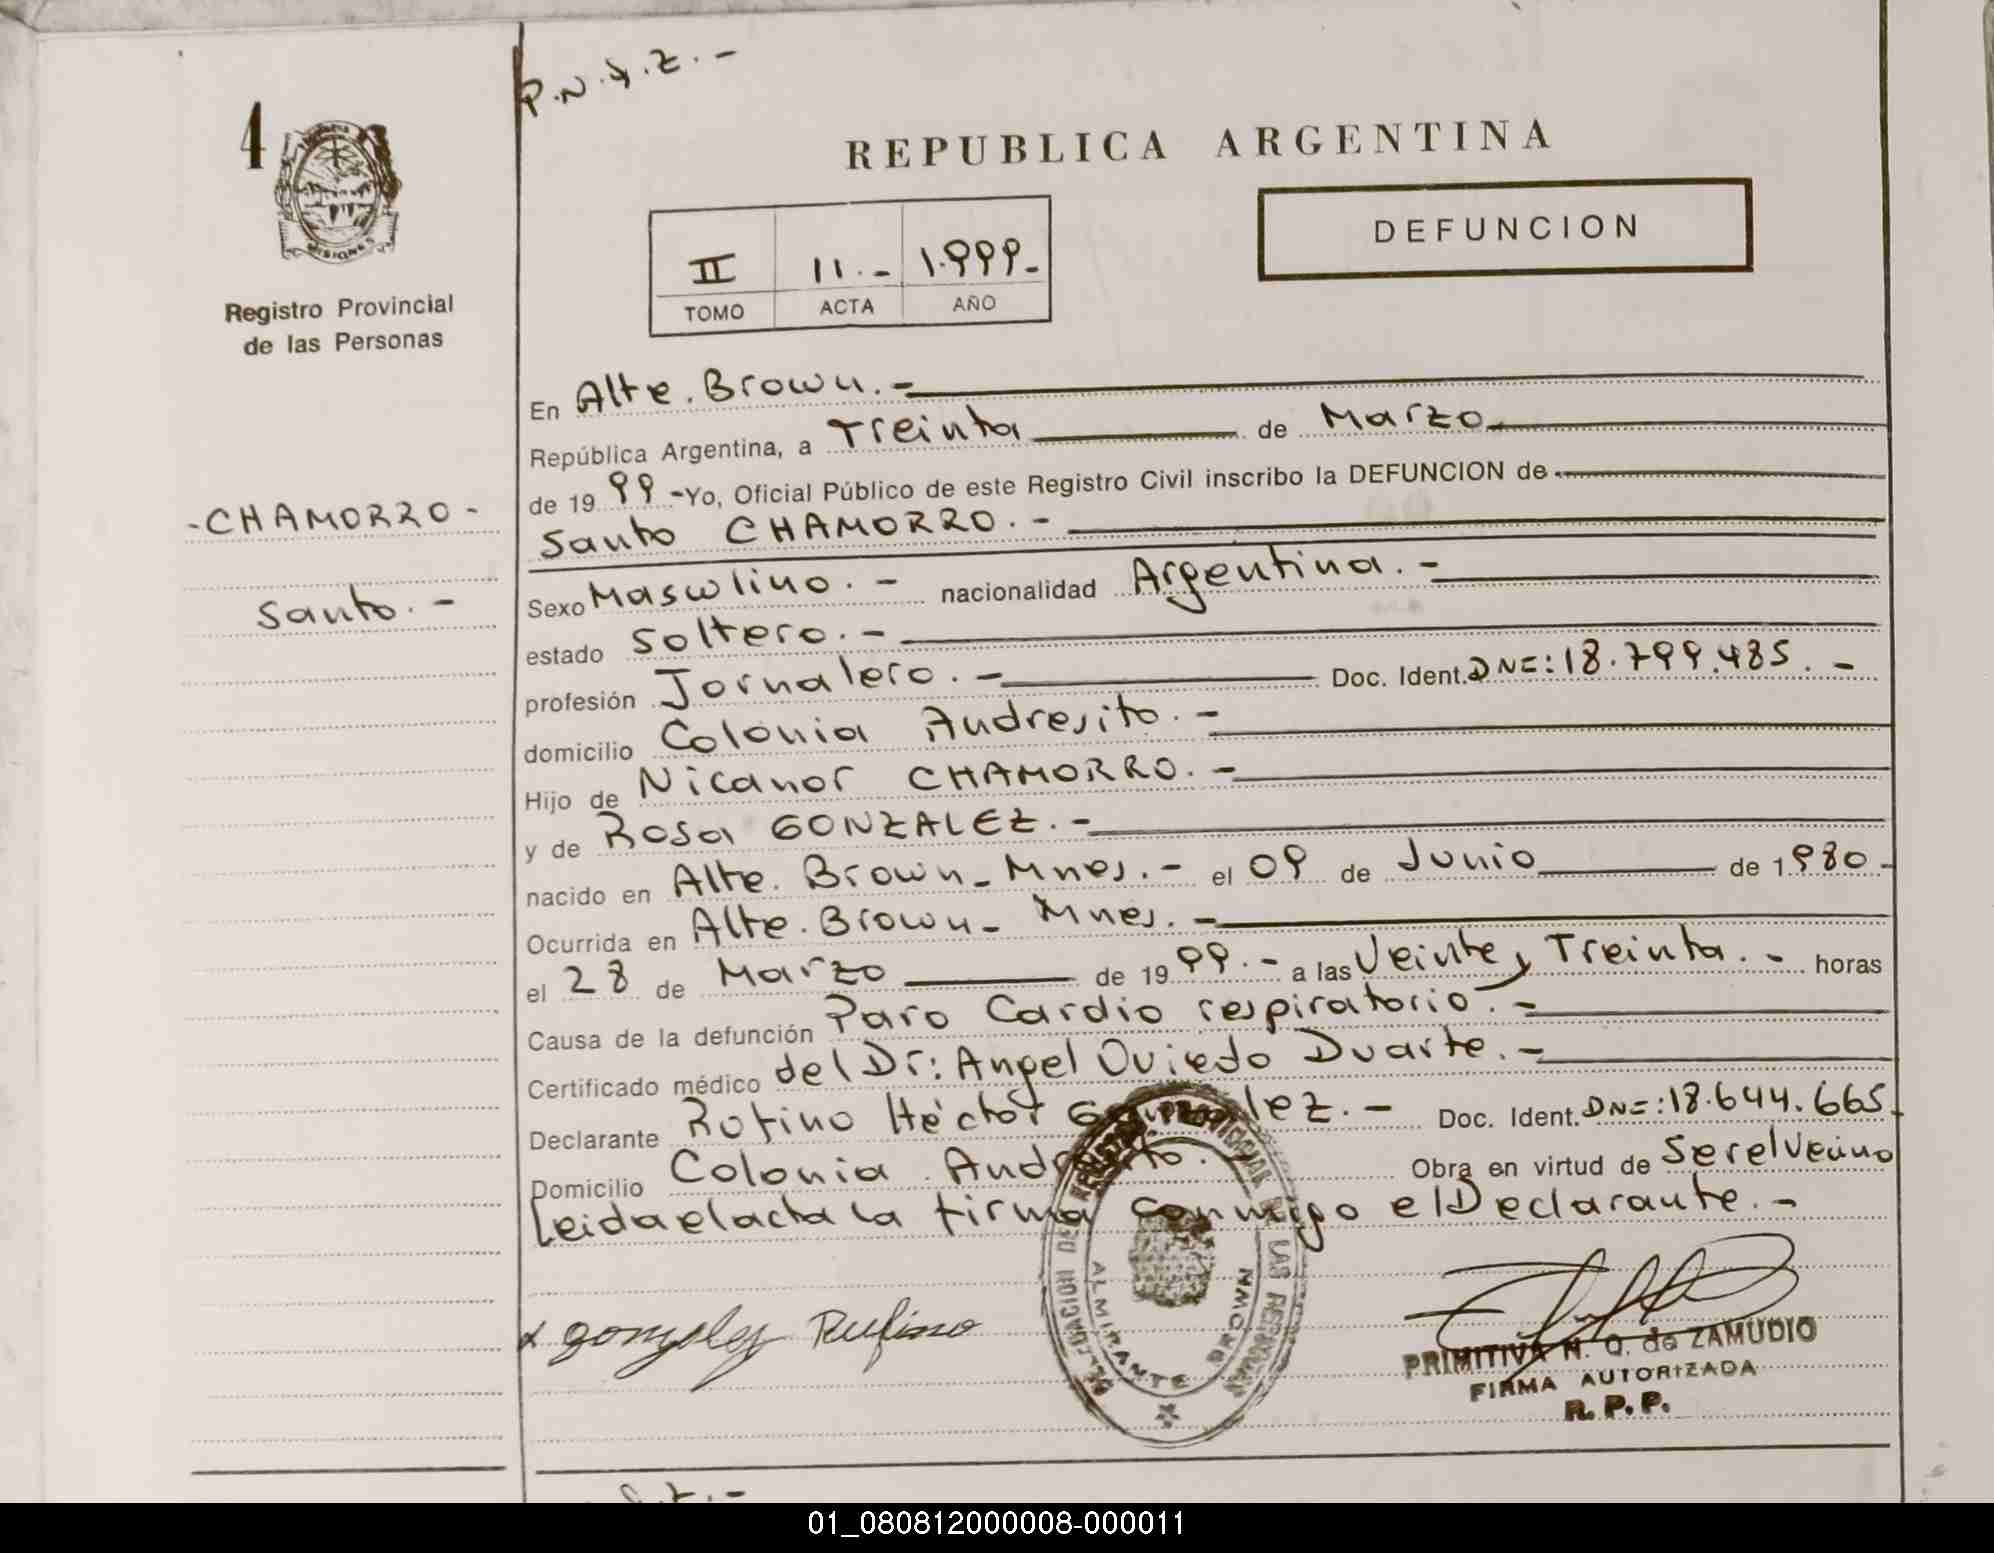 P.N.Q.Z.-
4
MISIONES
Registro Provincial
de las Personas
-CHAMORRO-
Santo.-
REPUBLICA ARGENTINA
II 11.- 1.999-
TOMO ACTA AÑO
DEFUNCION
En Alte. Brown.-
República Argentina, a Treinta de Marzo
de 1999-Yo, Oficial Público de este Registro Civil inscribo la DEFUNCION de
Santo CHAMORRO.-
Sexo Masculino.- nacionalidad Argentina.-
estado Soltero.-
profesión Jornalero.- Doc. Ident. DNI:18.799.485.-
domicilio Colonia Andresito.-
Hijo de Nicanor CHAMORRO.-
y de Rosa GONZALEZ.-
nacido en Alte. Brown-Mnes.- el 09 de Junio de 1980-
Ocurrida en Alte. Brown-Mnes.-
el 28 de Marzo de 1999.- a las Veinte y Treinta.- horas
Causa de la defunción Paro Cardio respiratorio.-
Certificado médico del Dr: Angel Oviedo Duarte.-
Declarante Rufino Héctor Gonzalez.- Doc. Ident. DNI:18.644.665.
Domicilio Colonia Andresito. Obra en virtud de Ser el Vecino
Leida el acta la firma conmigo el Declarante.-
x gonzalez Rufino
DELEGACION DEL REGISTRO PROVINCIAL DE LAS PERSONAS
ALMIRANTE BROWN
PRIMITIVA N. Q. de ZAMUDIO
FIRMA AUTORIZADA
R.P.P.
01_080812000008-000011